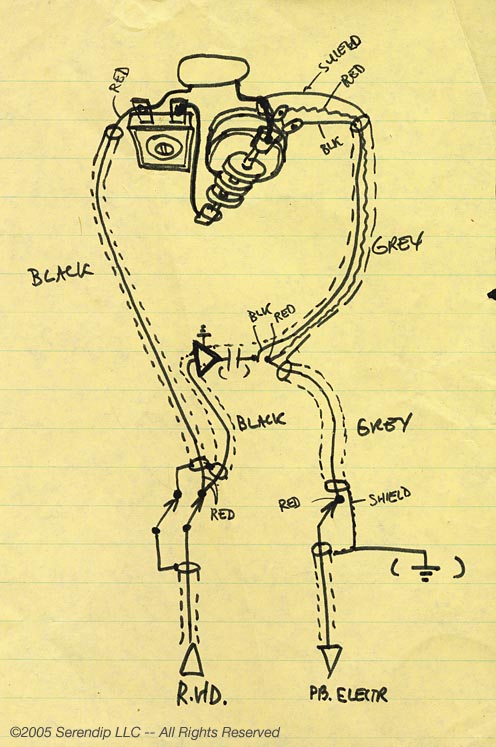 SHIELD
RED
RED
BLK
GREY
BLACK
BLK
RED
BLACK
GREY
RED
RED
SHIELD
( )
R.HD.
P.B. ELECTR
©2005 Serendip LLC -- All Rights Reserved